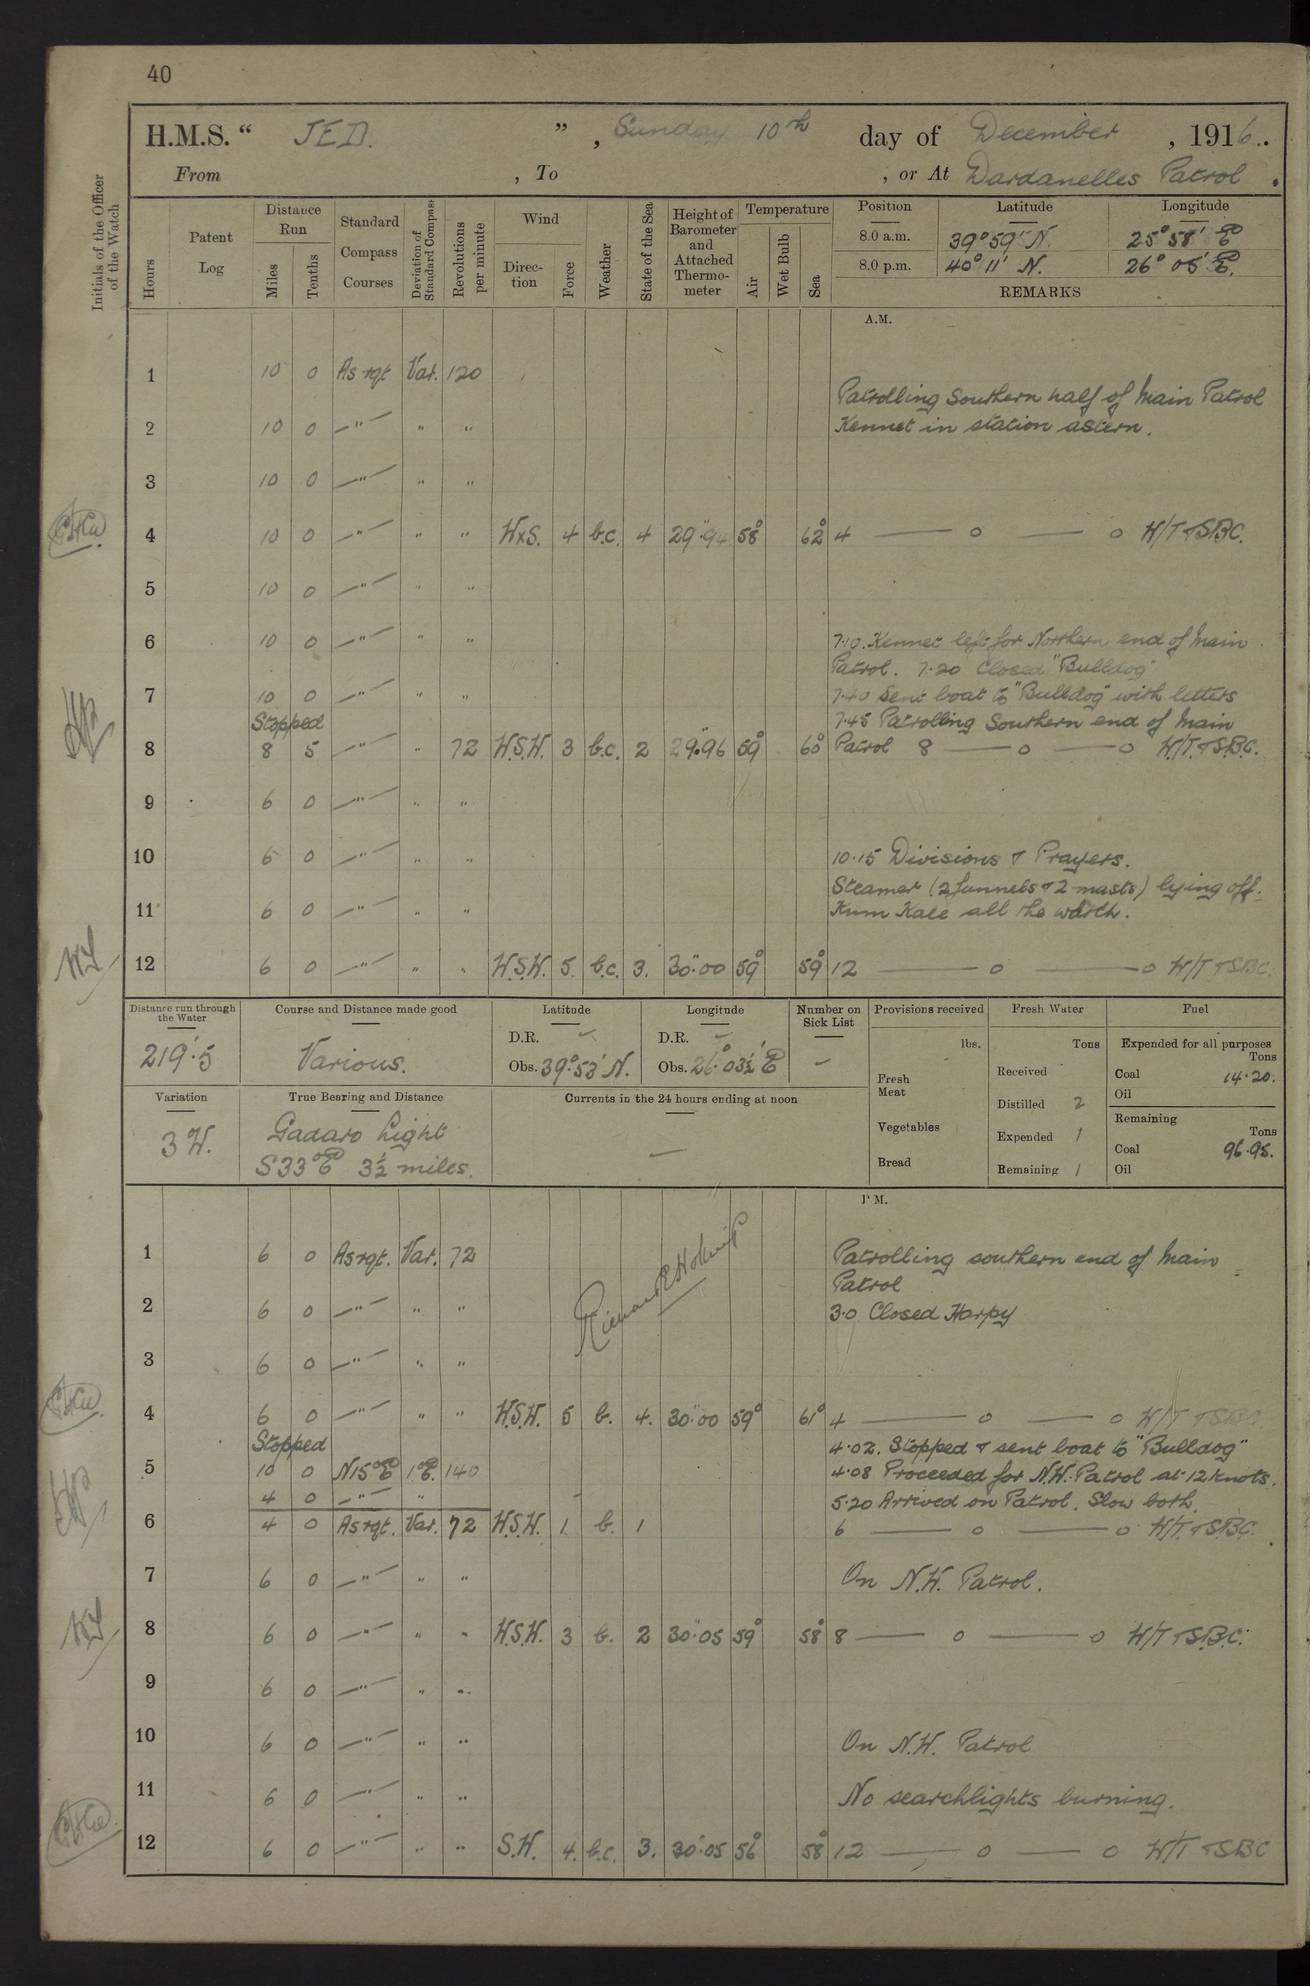 40
H.M.S. “ JED. ” , Sunday 10th day of December , 1916.
From , To , or At Dardanelles Patrol .
Initials of the Officer of the Watch
Hours
Patent Log
Distance Run
Miles
Tenths
Standard Compass Courses
Deviation of Standard Compass
Revolutions per minute
Wind
Direc-tion
Force
Weather
State of the Sea
Height of Barometer and Attached Thermo-meter
Temperature
Air
Wet Bulb
Sea
Position Latitude Longitude
8.0 a.m. 39° 59' N. 25° 58' E
8.0 p.m. 40° 11' N. 26° 05' E.
REMARKS
A.M.
1 10 0 As rqt Var. 120
Patrolling Southern half of Main Patrol
2 10 0 —"— " " Kennet in station astern.
3 10 0 —"— " "
4 10 0 —"— " " WxS. 4 b.c. 4 29".94 58° 62° 4 — o — o W/T & SBC.
5 10 0 —"— " "
6 10 0 —"— " " 7.10. Kennet left for Northern end of Main
Patrol. 7.20 Closed "Bulldog"
7 10 0 —"— " " 7.40 Sent boat to "Bulldog" with letters
Stopped 7.45 Patrolling Southern end of Main
8 8 5 —"— " 72 W.S.W. 3 b.c. 2 29".96 59° 60° Patrol 8 — o — o W/T. & S.B.C.
9 6 0 —"— " "
10 6 0 —"— " " 10.15 Divisions & Prayers.
Steamer (2 funnels & 2 masts) lying off
11 6 0 —"— " " Kum Kale all the watch.
12 6 0 —"— " " W.S.W. 5. b.c. 3. 30".00 59° 59° 12 — o — o W/T & SBC.
Distance run through the Water
219'.5
Course and Distance made good
Various.
Latitude
D.R. —
Obs. 39° 53' N.
Longitude
D.R. —
Obs. 26° 03½' E
Number on Sick List
—
Provisions received
lbs.
Fresh Meat
Vegetables
Bread
Fresh Water
Tons
Received
Distilled 2
Expended 1
Remaining 1
Fuel
Expended for all purposes
Tons
Coal 14.20.
Oil
Remaining
Tons
Coal 96.95.
Oil
Variation
3 W.
True Bearing and Distance
Gadaro Light
S 33° E 3½ miles.
Currents in the 24 hours ending at noon
—
P.M.
1 6 0 As rqt. Var. 72 Patrolling southern end of Main
Patrol
2 6 0 —"— " " 3.0 Closed Harpy
3 6 0 —"— " "
4 6 0 —"— " " W.S.W. 5 b. 4. 30".00 59° 61° 4 — o — o W/T & SBC
Stopped 4.02. Stopped & sent boat to "Bulldog"
5 10 0 N15°E 1°E. 140 4.08 Proceeded for N.W. Patrol at 12 knots.
4 0 —"— " 5.20 Arrived on Patrol. Slow both.
6 4 0 As rqt. Var. 72 W.S.W. 1. b. 1 6 — o — o W/T. & S.B.C.
7 6 0 —"— " " On N.W. Patrol.
8 6 0 —"— " " W.S.W. 3 b. 2 30".05 59° 58° 8 — o — o W/T & S.B.C.
9 6 0 —"— " "
10 6 0 —"— " " On N.W. Patrol
11 6 0 —"— " " No searchlights burning.
12 6 0 —"— " " S.W. 4. b.c. 3. 30".05 56° 58° 12 — o — o W/T & SBC